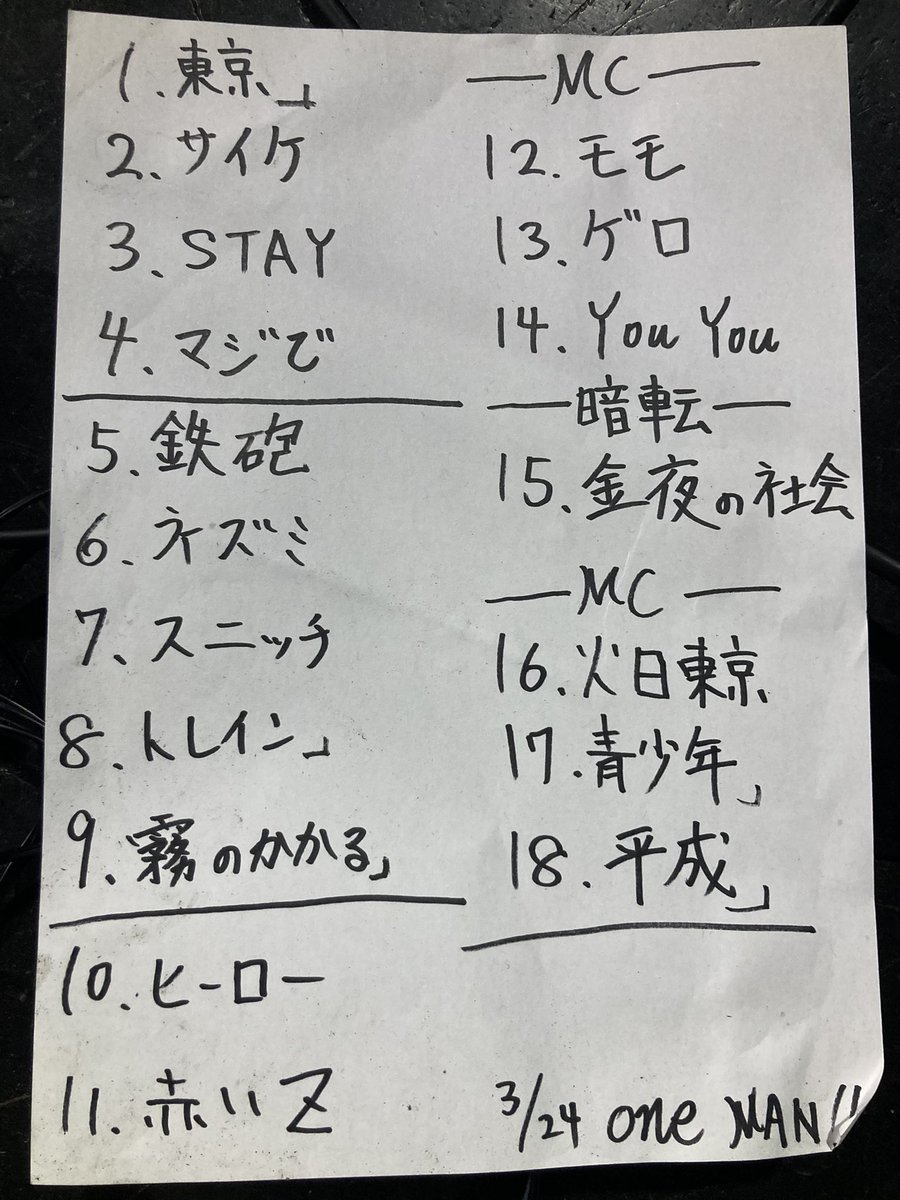 1.東京」
2.サイケ
3、STAY
4、マジで
5、鉄砲
6、ネズミ
7、スニッチ
8.トレイン」
9、霧のかかる」
10、ヒーロー
11.赤いZ
—MC—
12.モモ
13.ゲロ
14.You You
—暗転—
15.金夜の社会
—MC—
16.火日東京
17.青少年」
18.平成」
3/24 one MAN!!